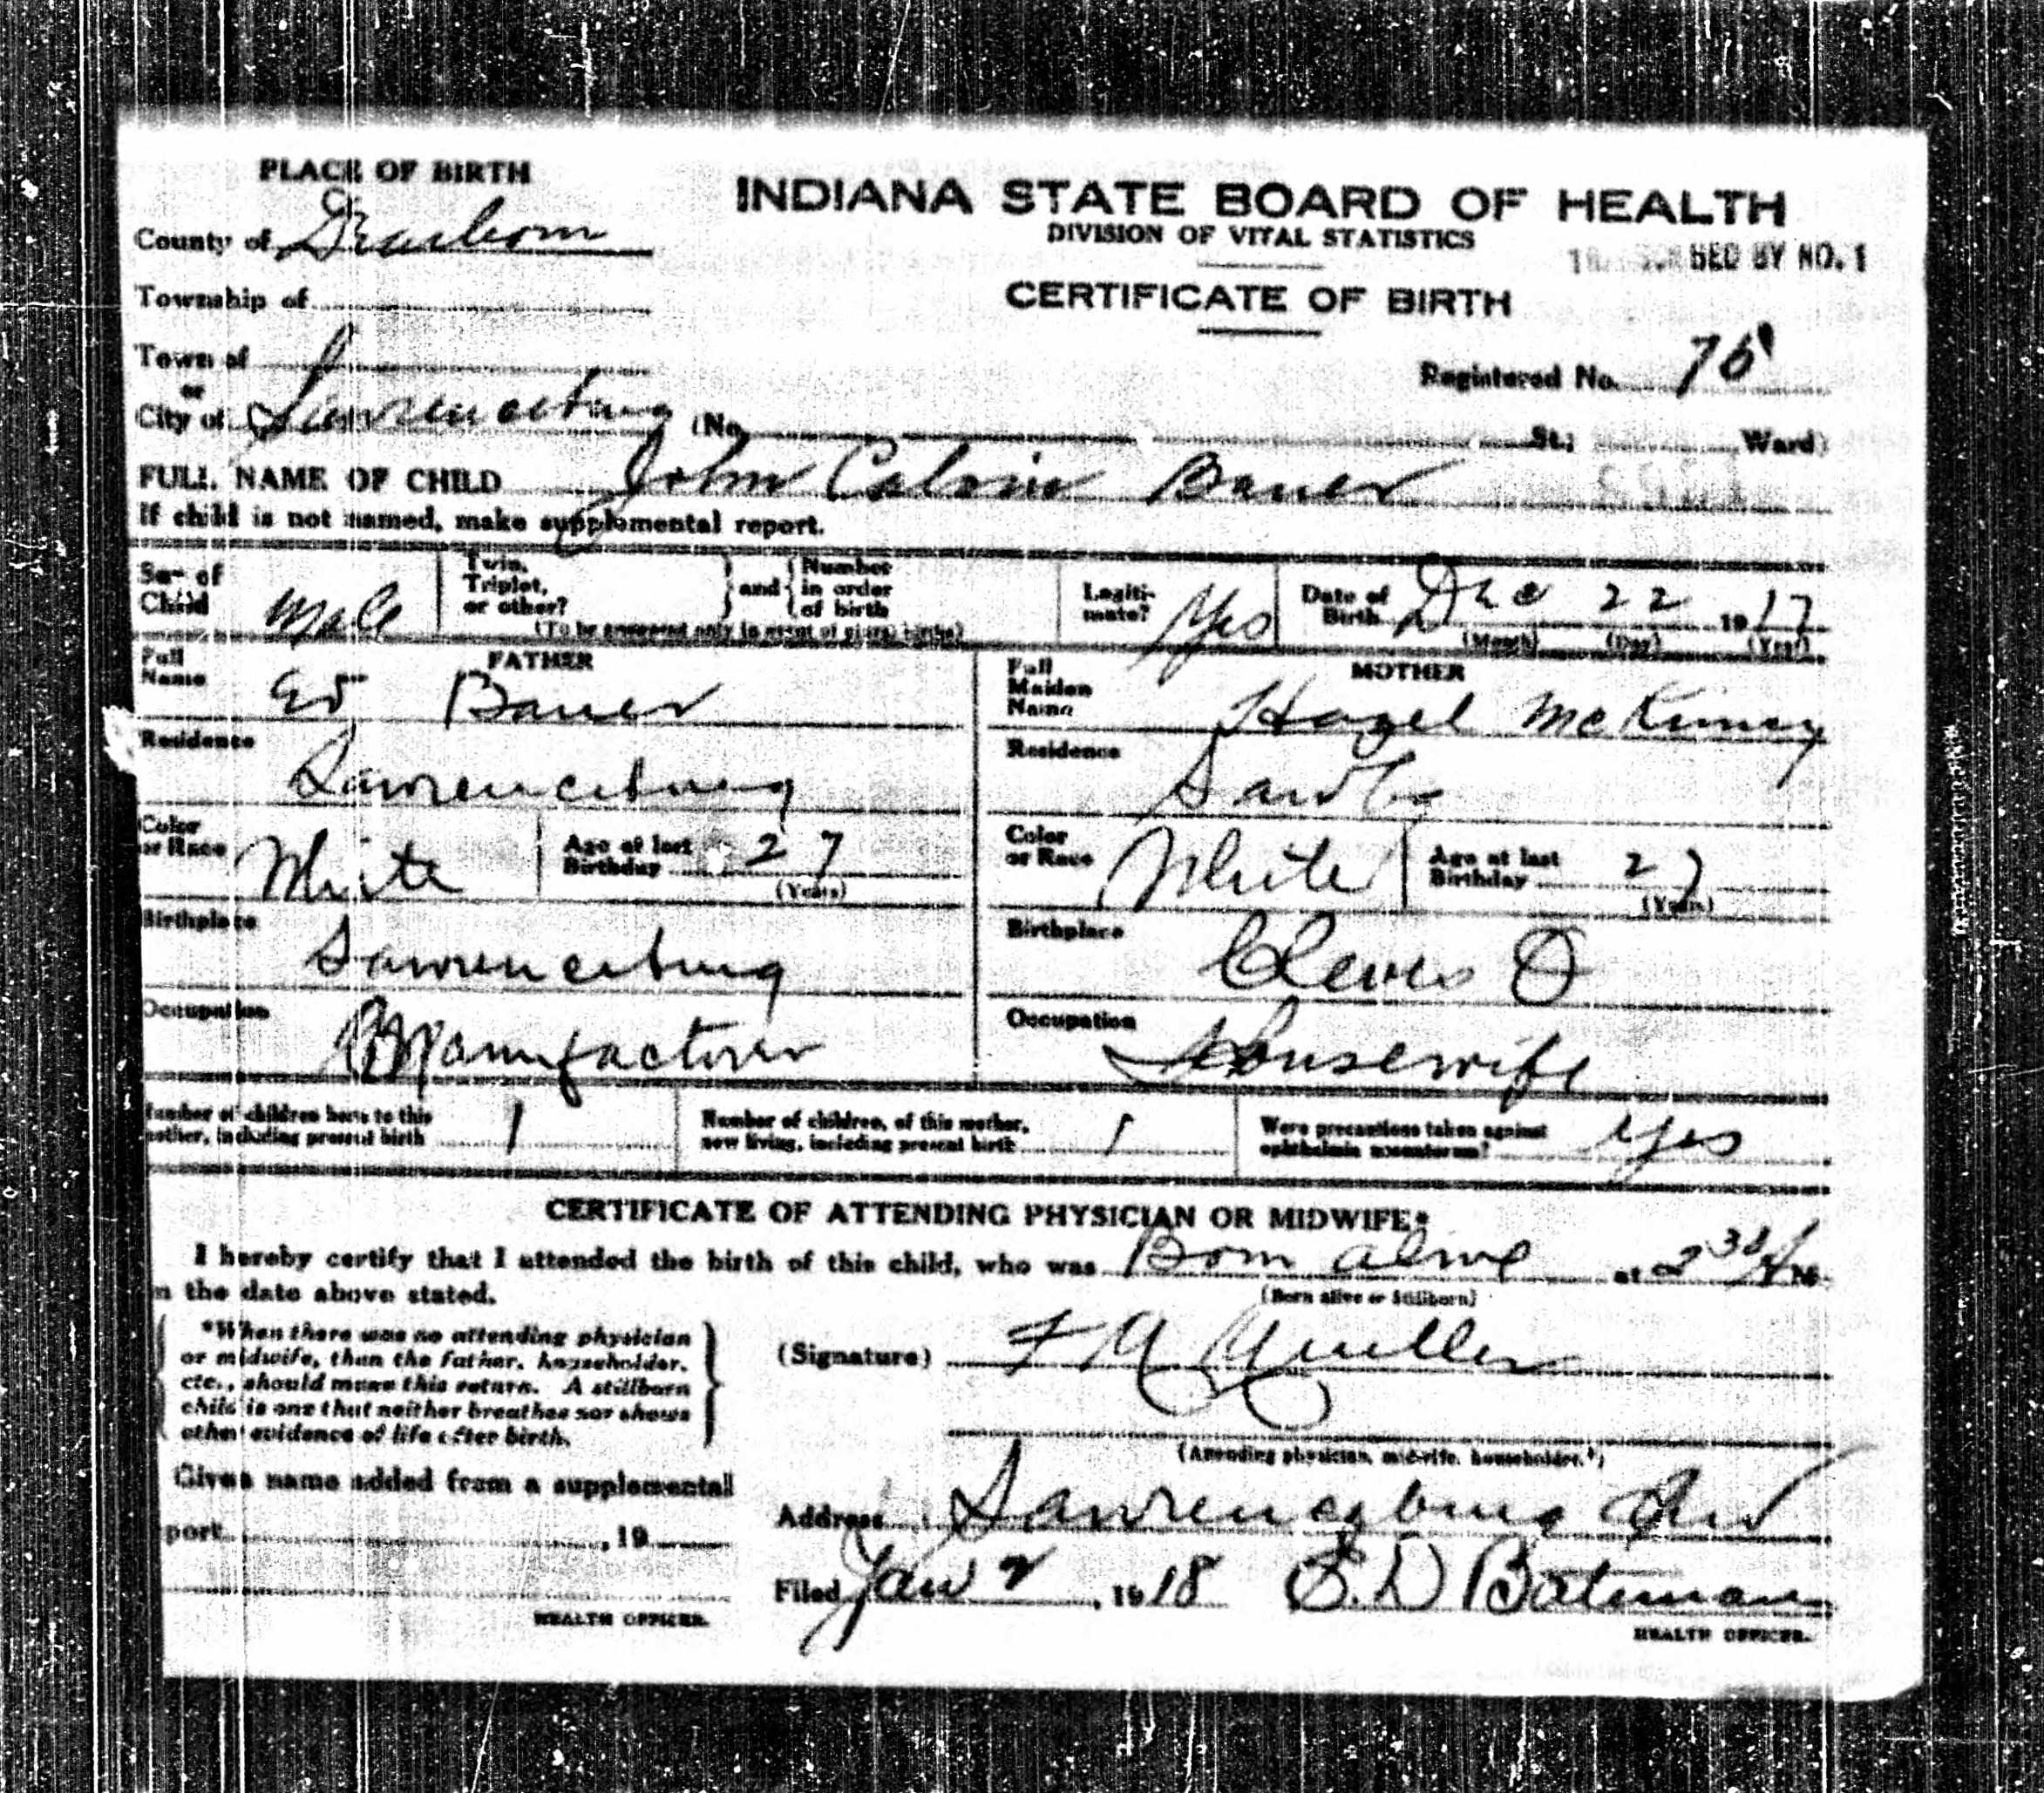 PLACE OF BIRTH
INDIANA STATE BOARD OF HEALTH
DIVISION OF VITAL STATISTICS
County of Dearborn
BED BY NO. 1
CERTIFICATE OF BIRTH
Township of
Town of
Registered No. 75
or
City of Lawrenceburg (No. St.; Ward)
FULL NAME OF CHILD John Calvin Bauer
If child is not named, make supplemental report.
Sex of Child Male
Twin, Triplet, or other? and Number in order of birth
(To be answered only in event of plural births)
Legitimate? Yes
Date of Birth Dec 22 1917
(Month) (Day) (Year)
FATHER
Full Name Ed Bauer
MOTHER
Full Maiden Name Hazel McKinney
Residence Lawrenceburg
Residence
Color or Race White
Age at last Birthday 27
(Years)
Color or Race White
Age at last Birthday 27
(Years)
Birthplace Lawrenceburg
Birthplace Cleves O
Occupation Manufacturer
Occupation Housewife
Number of children born to this mother, including present birth 1
Number of children, of this mother, now living, including present birth 1
Were precautions taken against ophthalmia neonatorum? Yes
CERTIFICATE OF ATTENDING PHYSICIAN OR MIDWIFE*
I hereby certify that I attended the birth of this child, who was Born alive at 2 30 A M.
n the date above stated.
(Born alive or Stillborn)
*When there was no attending physician
or midwife, then the father, householder,
etc., should make this return. A stillborn
child is one that neither breathes nor shows
other evidence of life after birth.
(Signature) F M Mueller
(Attending physician, midwife, householder.*)
Given name added from a supplemental
port , 19
Address Lawrenceburg Ind
Filed Jan 2, 1918 E. D Bateman
HEALTH OFFICER.
HEALTH OFFICER.